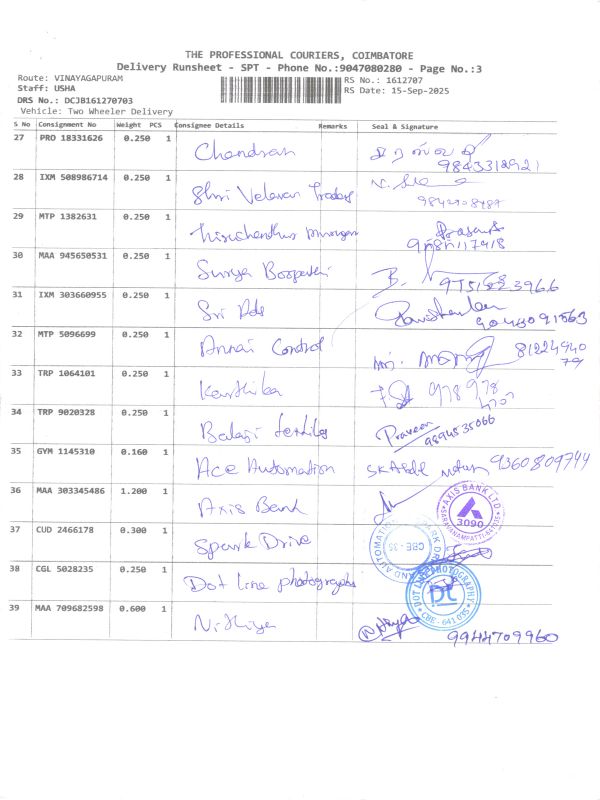 THE PROFESSIONAL COURIERS, COIMBATORE
Delivery Runsheet - SPT - Phone No.:9047080280 - Page No.:3
Route: VINAYAGAPURAM
RS No.: 1612707
Staff: USHA
RS Date: 15-Sep-2025
DRS No.: DCJB161270703
Vehicle: Two Wheeler Delivery
S No Consignment No Weight PCS Consignee Details Remarks Seal & Signature
27 PRO 18331626 0.250 1 Chandran
9843312921
28 IXM 508986714 0.250 1 Shri Velavan Traders
29 MTP 1382631 0.250 1
30 MAA 945650531 0.250 1 Surya B.
31 IXM 303660955 0.250 1 Sri
32 MTP 5096699 0.250 1 Annai Control
8122494079
33 TRP 1064101 0.250 1 Karthika
978978
34 TRP 9020328 0.250 1 Balaji textiles Praveen
9894535066
35 GYM 1145310 0.160 1 Ace Automation 9360809744
36 MAA 303345486 1.200 1 Axis Bank
AXIS BANK LTD.
3090
37 CUD 2466178 0.300 1 Spark Drive
38 CGL 5028235 0.250 1 Dot line photography
DOT LINE PHOTOGRAPHY
CBE - 641 035
39 MAA 709682598 0.600 1 Nithiya
9944709960